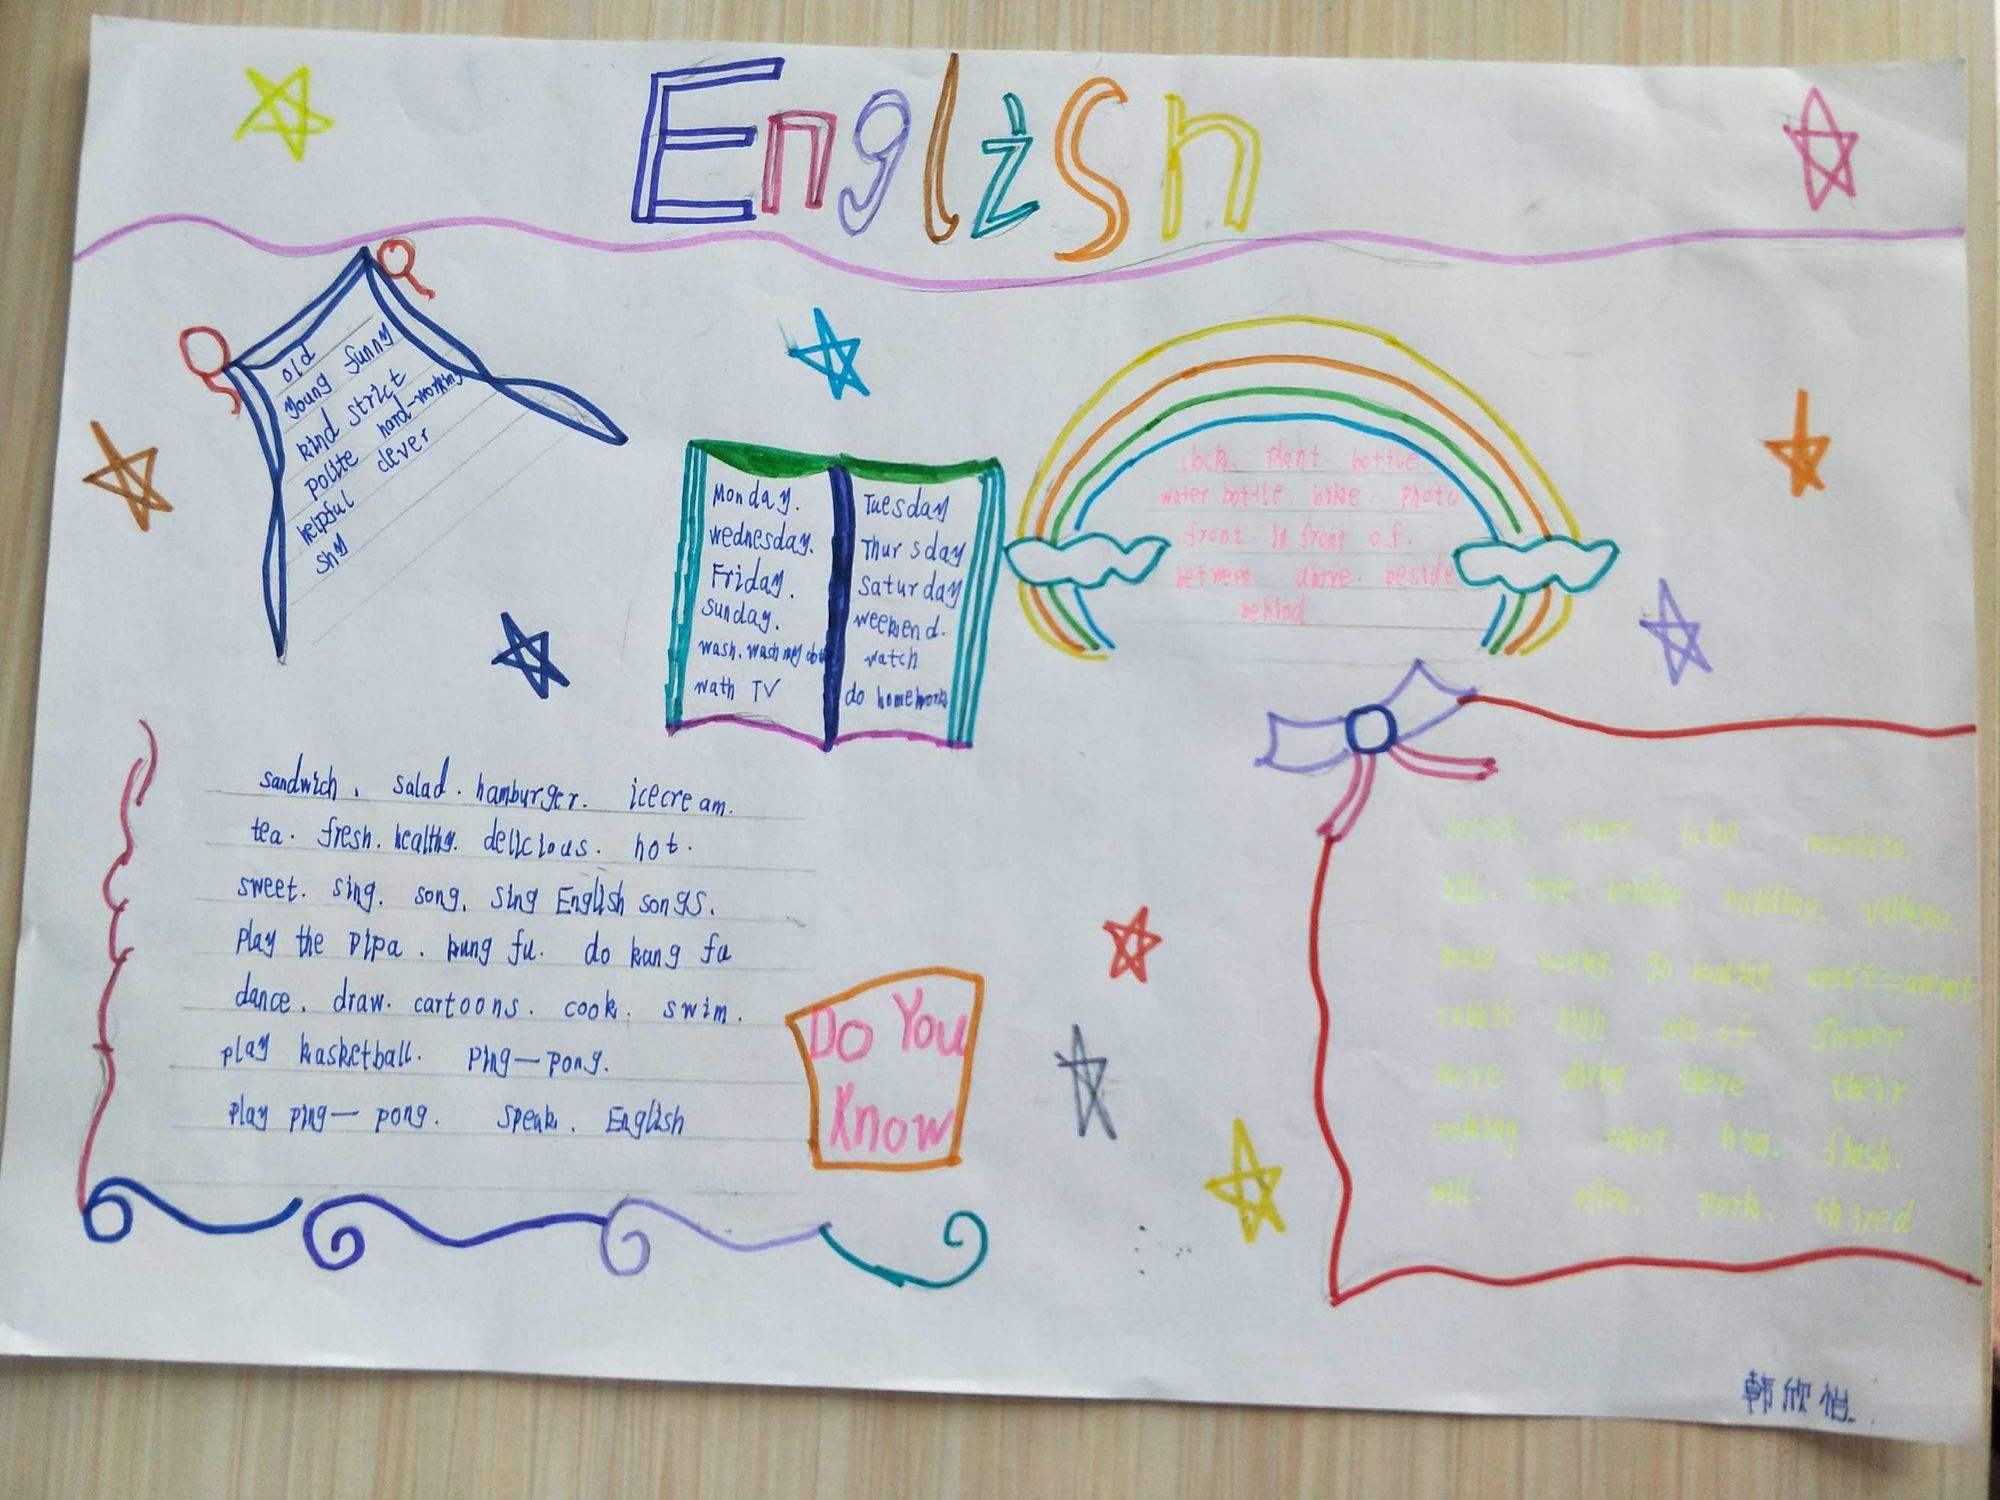 English
old
young funny
kind strict
polite hard-working
helpful clever
shy
Monday.
wednesday.
Friday.
sunday.
wash. wash my
wath TV
Tuesday
Thursday
saturday
weekend.
watch
do homework
clock. plant bottle.
water bottle. bike. photo
front. in front of.
between. above. beside
behind
sandwich. salad. hamburger. icecream.
tea. fresh. healthy. delicious. hot.
sweet. sing. song. sing English songs.
play the pipa. kung fu. do kung fu
dance. draw. cartoons. cook. swim.
play basketball. ping—pong.
play ping—pong. speak. English
Do You
Know
forest. river lake mountain.
hill. tree. bridge. building. village.
go boating.
rabbit high lots of flower
more dirty there their
robot. him. finish.
will. often. park. thired
韩欣怡